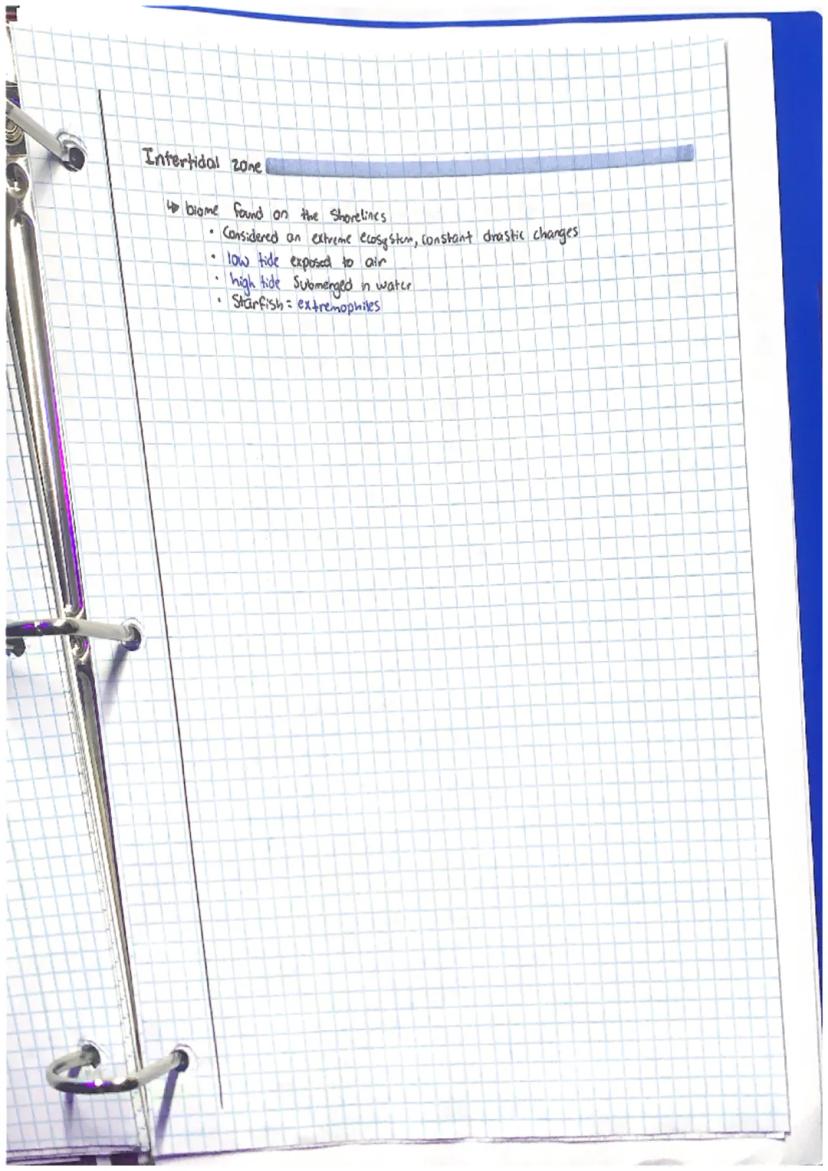 Intertidal zone
↳ biome found on the shorelines
• Considered an extreme ecosystem, constant drastic changes
• low tide exposed to air
• high tide Submerged in water
• Starfish = extremophiles